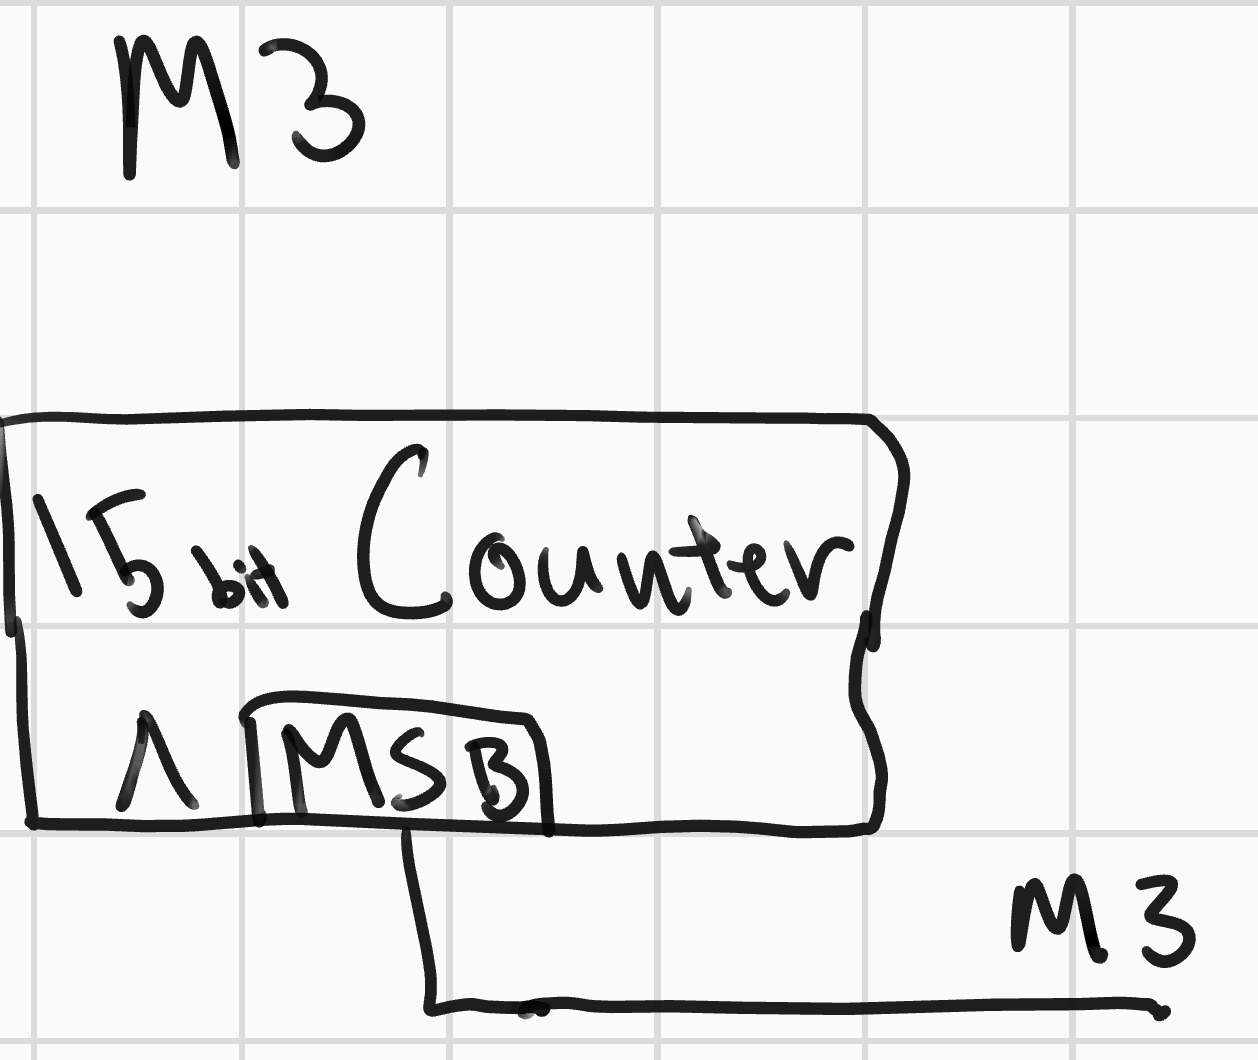 M3
15 bit Counter
MSB
M3